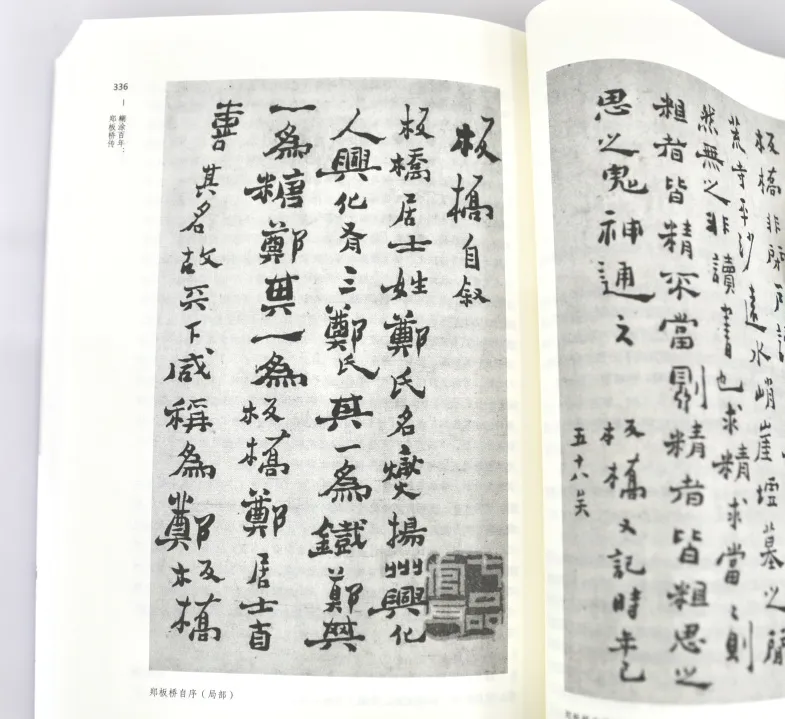 336
糊涂百年：
郑板桥传
板橋自叙
板橋居士姓鄭氏名燮揚州興化
人興化有三鄭氏其一為鐵鄭其
一為糖鄭其一為板橋鄭居士自
喜其名故天下咸稱為鄭板橋
郑板桥自序（局部）
板橋非閉戶讀
荒寺平沙遠水峭崖墟墓之間
然無之非讀書也求精求當當則
粗者皆精不當則精者皆粗思之
思之鬼神通之
板橋又記時年已
五十八矣